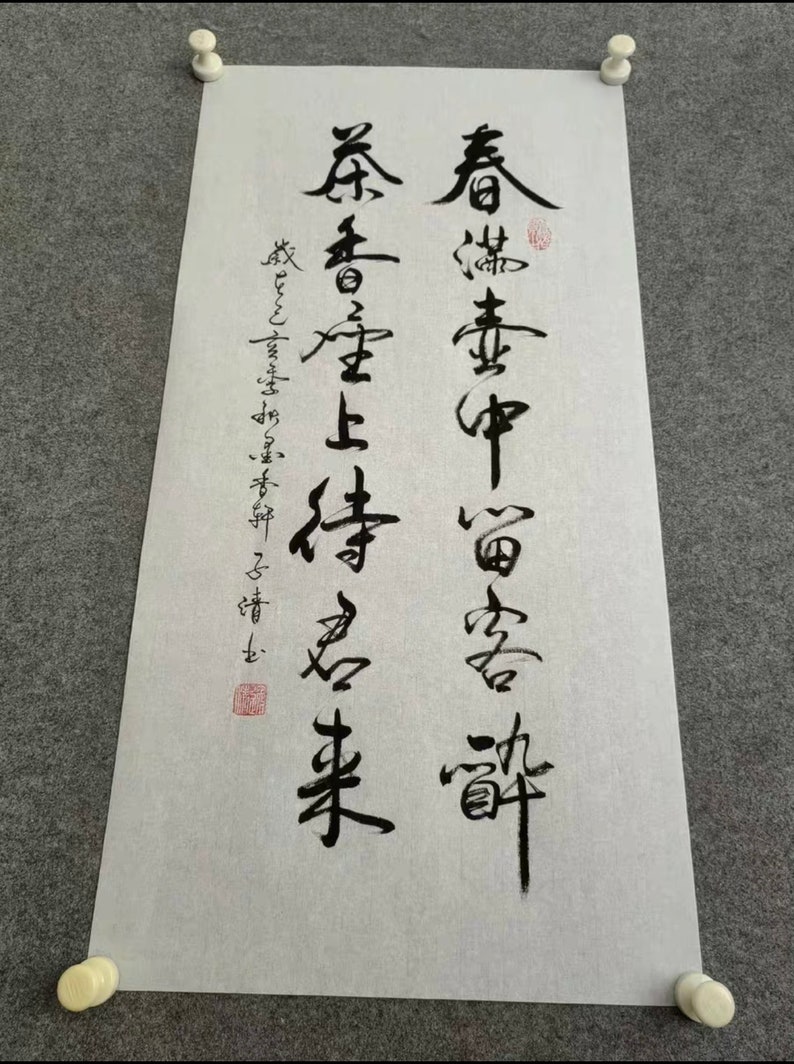 春满壶中留客醉
茶香座上待君来
岁在己亥季秋墨香轩子清书